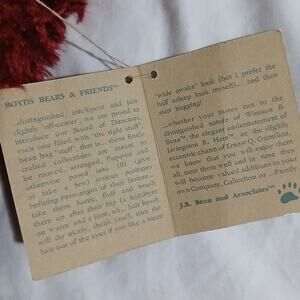 BOYDS BEARS & FRIENDS™
...distinguished, intelligent and just
slightly "off-center", we are proud to
introduce our Board of Directors,
each one filled with "the right stuff",
bean bag "stuff" that is. These finely
crafted collectibles are meant to
be moved, arranged, flopped and
otherwise posed into (to give
or take a few) noted positions
befitting personages of their stature...
take them home, fluff and much
there up after their trip (a hairdryer
on warm and a lure, uh... hair brush
will do nicely, thank you), into the
hair out of the eyes if you like a more
"wide awake" look (but I prefer the
half asleep look myself)... and then
start hugging!
...whether your tastes run to the
distinguished stature of Winston B.
Bean™, the elegant understatement of
Livingston R. Hare™, or the slightly
eccentric charm of Ernest Q. Grimilkin,
we know that you will enjoy them
all, treat them well and in time they
will become valued additions to your
own Company, Collection or ....Family.
J.B. Bean and Associates™